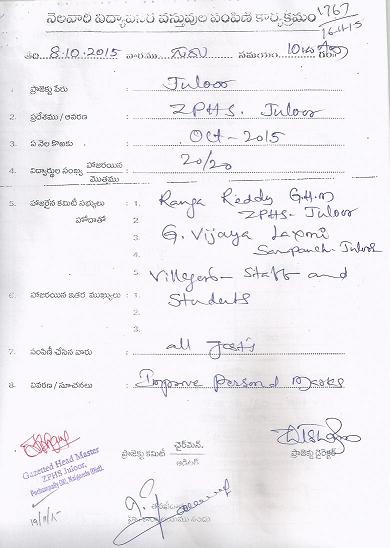 నెలవారీ విద్యావసర వస్తువుల పంపిణి కార్యక్రమం
1767
16-11-15
తేది 8-10-2015 వారము గురు సమయం 10
1. ప్రాజెక్టు పేరు : Juloor
2. ప్రదేశము / ఆవరణ : ZPHS. Juloor
3. ఏ నెల కొరకు : Oct-2015
4. విద్యార్థుల సంఖ్య హాజరయిన / మొత్తము : 20/20
5. హాజరైన కమిటీ సభ్యులు : 1. Ranga Reddy G.H.M
హోదాతో 2. ZPHS. Juloor
3. G. Vijaya Laxmi
4. Sarpanch Juloor
5. Villegers - Staff and
6. హాజరయిన ఇతర ముఖ్యులు : 1. Students
2.
3.
7. పంపిణీ చేసిన వారు : all
8. వివరణ / సూచనలు : Improve Personal
Gazetted Head Master
ZPHS Juloor,
ప్రాజెక్టు కమిటీ ఛైర్మెన్.
ప్రాజెక్టు డైరెక్టర్